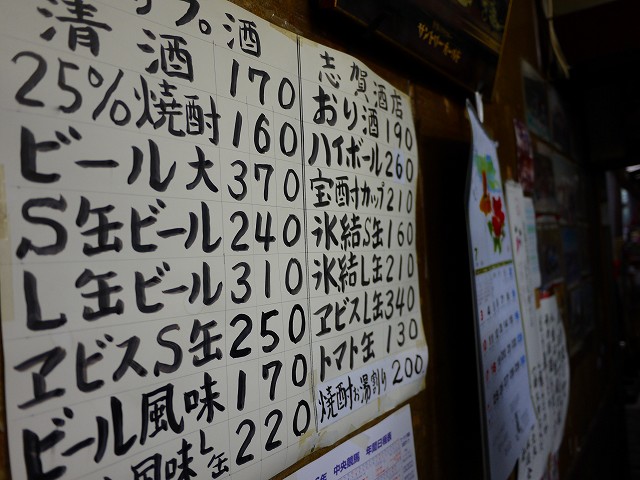 ップ。酒
清酒 170
25%焼酎 160
ビール大 370
S缶ビール 240
L缶ビール 310
ヱビスS缶 250
ビール風味 170
風味L缶 220
志賀酒店
おり酒 190
ハイボール 260
宝酎カップ 210
氷結S缶 160
氷結L缶 210
ヱビスL缶 340
トマト缶 130
焼酎お湯割り 200
年 中央競馬 年間日程表